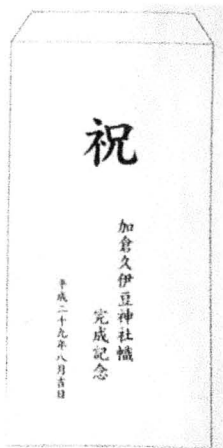 祝
加倉久伊豆神社幟
完成記念
平成二十九年八月吉日